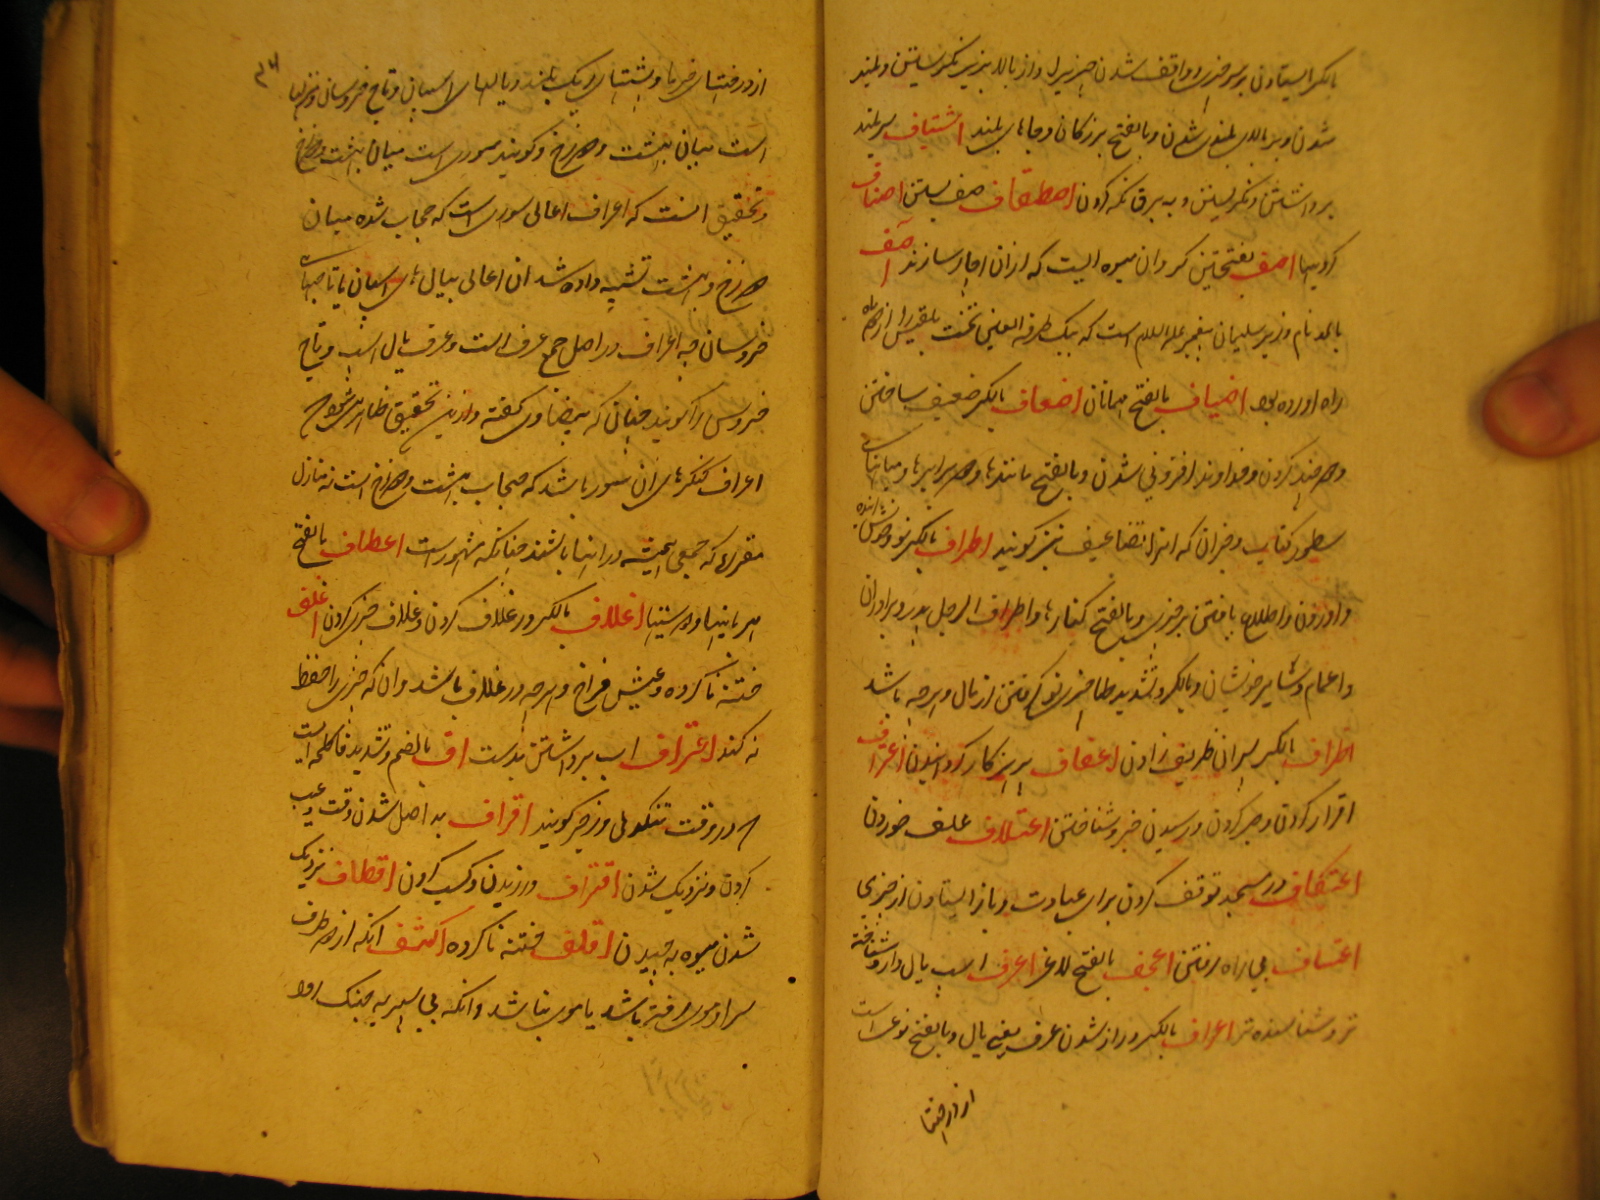 بالکسر ایستادن بر سر چیزی و واقف شدن چیزیرا و از بالا بزیر نگریستن و بلند
شدن و بر بالای بلندی شدن و بالفتح بزرگان و جاهای بلند اشتیاف سر بلند
برداشتن و نگریستن و به برق نگه کردن اصطفاف صف بستن اصناف
کردیها اصف بفتحتین کبر وان میوه ایست که از ان اچار سازند آصف
بالمد نام وزیر سلیمان پیغمبر علیه السلام است که بیک طرفة العینی تخت بلقیس را از
راه آورده بود اضیاف بالفتح مهمانان اضعاف بالکسر ضعیف ساختن
و دو چند کردن و خداوند افزونی شدن و بالفتح مانندها و دو برابرها و میانهای
سطور کتاب و چیزان که انرا تضاعیف نیز گویند اطراف بالکسر نو و خوش اینده
و اوردن و اطلاع یافتن بر چیزی و بالفتح کنارها و اطراف الرجل پدر و برادران
و اعمام و سایر خویشان و بالکسر و تشدید طا چیزی نو گرفتن از مال و هرچه باشد
اظراف بالکسر پسران ظریف زادن اعفاف پرهیز کار گردانیدن اعتراف
اقرار کردن و صبر کردن و پرسیدن خبر و شناختن اعتلاف علف خوردن
اعتکاف در مسجد توقف کردن برای عبادت و باز ایستادن از چیزی
اعتساف بی راه رفتن اعجف بالفتح لاغر اعرف اسپ یال دار و شناخته
تر و شناسنده تر اعراف بالکسر دراز شدن عرف یعنی یال و بالفتح نوعی است
از درختا
از درختهای خرما و پشتهای ریگ بلند و یالهای اسپان و تاج خروسان و منزلها
است میان بهشت و دوزخ و گویند سوری است میان بهشت و دوزخ
و تحقیق انست که اعراف اعالی سوری است که حجاب شده میان
دوزخ و بهشت تشبیه داده شد ان اعالی بیال های اسپان یا تاجهای
خروسان چه اعراف در اصل جمع عرف است و عرف یال اسپ و تاج
خروس را گویند چنانی که بیضاوی گفته و ازین تحقیق ظاهر میشود که
اعراف کنگرهای ان سور باشد که حجاب بهشت و دوزخ است نه منازل
مقرری که جمعی همیشه در انها باشند چنانکه مشهور است اعطاف بالفتح
مهربانیها و دوشها اغلاف بالکسر در غلاف کردن و غلاف چیزی کردن اغلف
ختنه ناکرده و عیش فراخ و هرچه در غلاف باشد و ان که چیزی را حفظ
نه کند اغتراف اب برداشتن بدست اف بالضم و تشدید فا کلمه ایست
که در وقت تنگدلی و زجر گویند اقراف بد اصل شدن وقت و عیب
کردن و نزدیک شدن اقتراف ورزیدن و کسب کردن اقطاف نزدیک
شدن میوه به چیدن اقلف ختنه ناکرده اکشف انکه از دو طرف
سر او موی رفته باشد یا موی نباشد و انکه بی سپر به جنگ رود